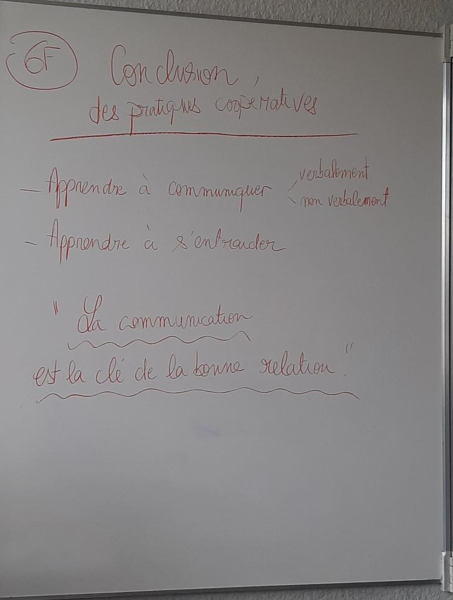 6F
Conclusion
des pratiques coopératives
- Apprendre à communiquer < verbalement
non verbalement
- Apprendre à s'entraider
" La communication
est la clé de la bonne relation."